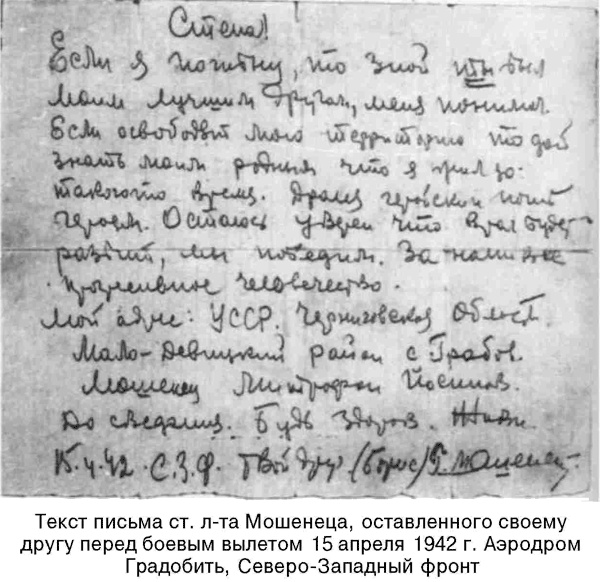 Степа!
Если я погибну, то знай ты был
моим лучшим другом, меня понимал.
Если освободят мою территорию то дай
знать моим родным что я жил до
такогото время. Дрался геройски погиб
героем. Остаюсь уверен что враг будет
разбит, мы победим. За нами все
прогрессивное человечество.
Мой адрес: УССР. Черниговская Област.
Мало-Девицкий район с Грабов.
Мошенец Митрофан
До свидания. Будь здоров. Живи.
15.4.42. С.З.Ф. Твой друг (Борис) Мошенец
Текст письма ст. л-та Мошенеца, оставленного своему
другу перед боевым вылетом 15 апреля 1942 г. Аэродром
Градобить, Северо-Западный фронт